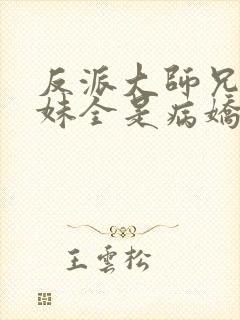 反派大師兄
妹全是病嬌
王雲松